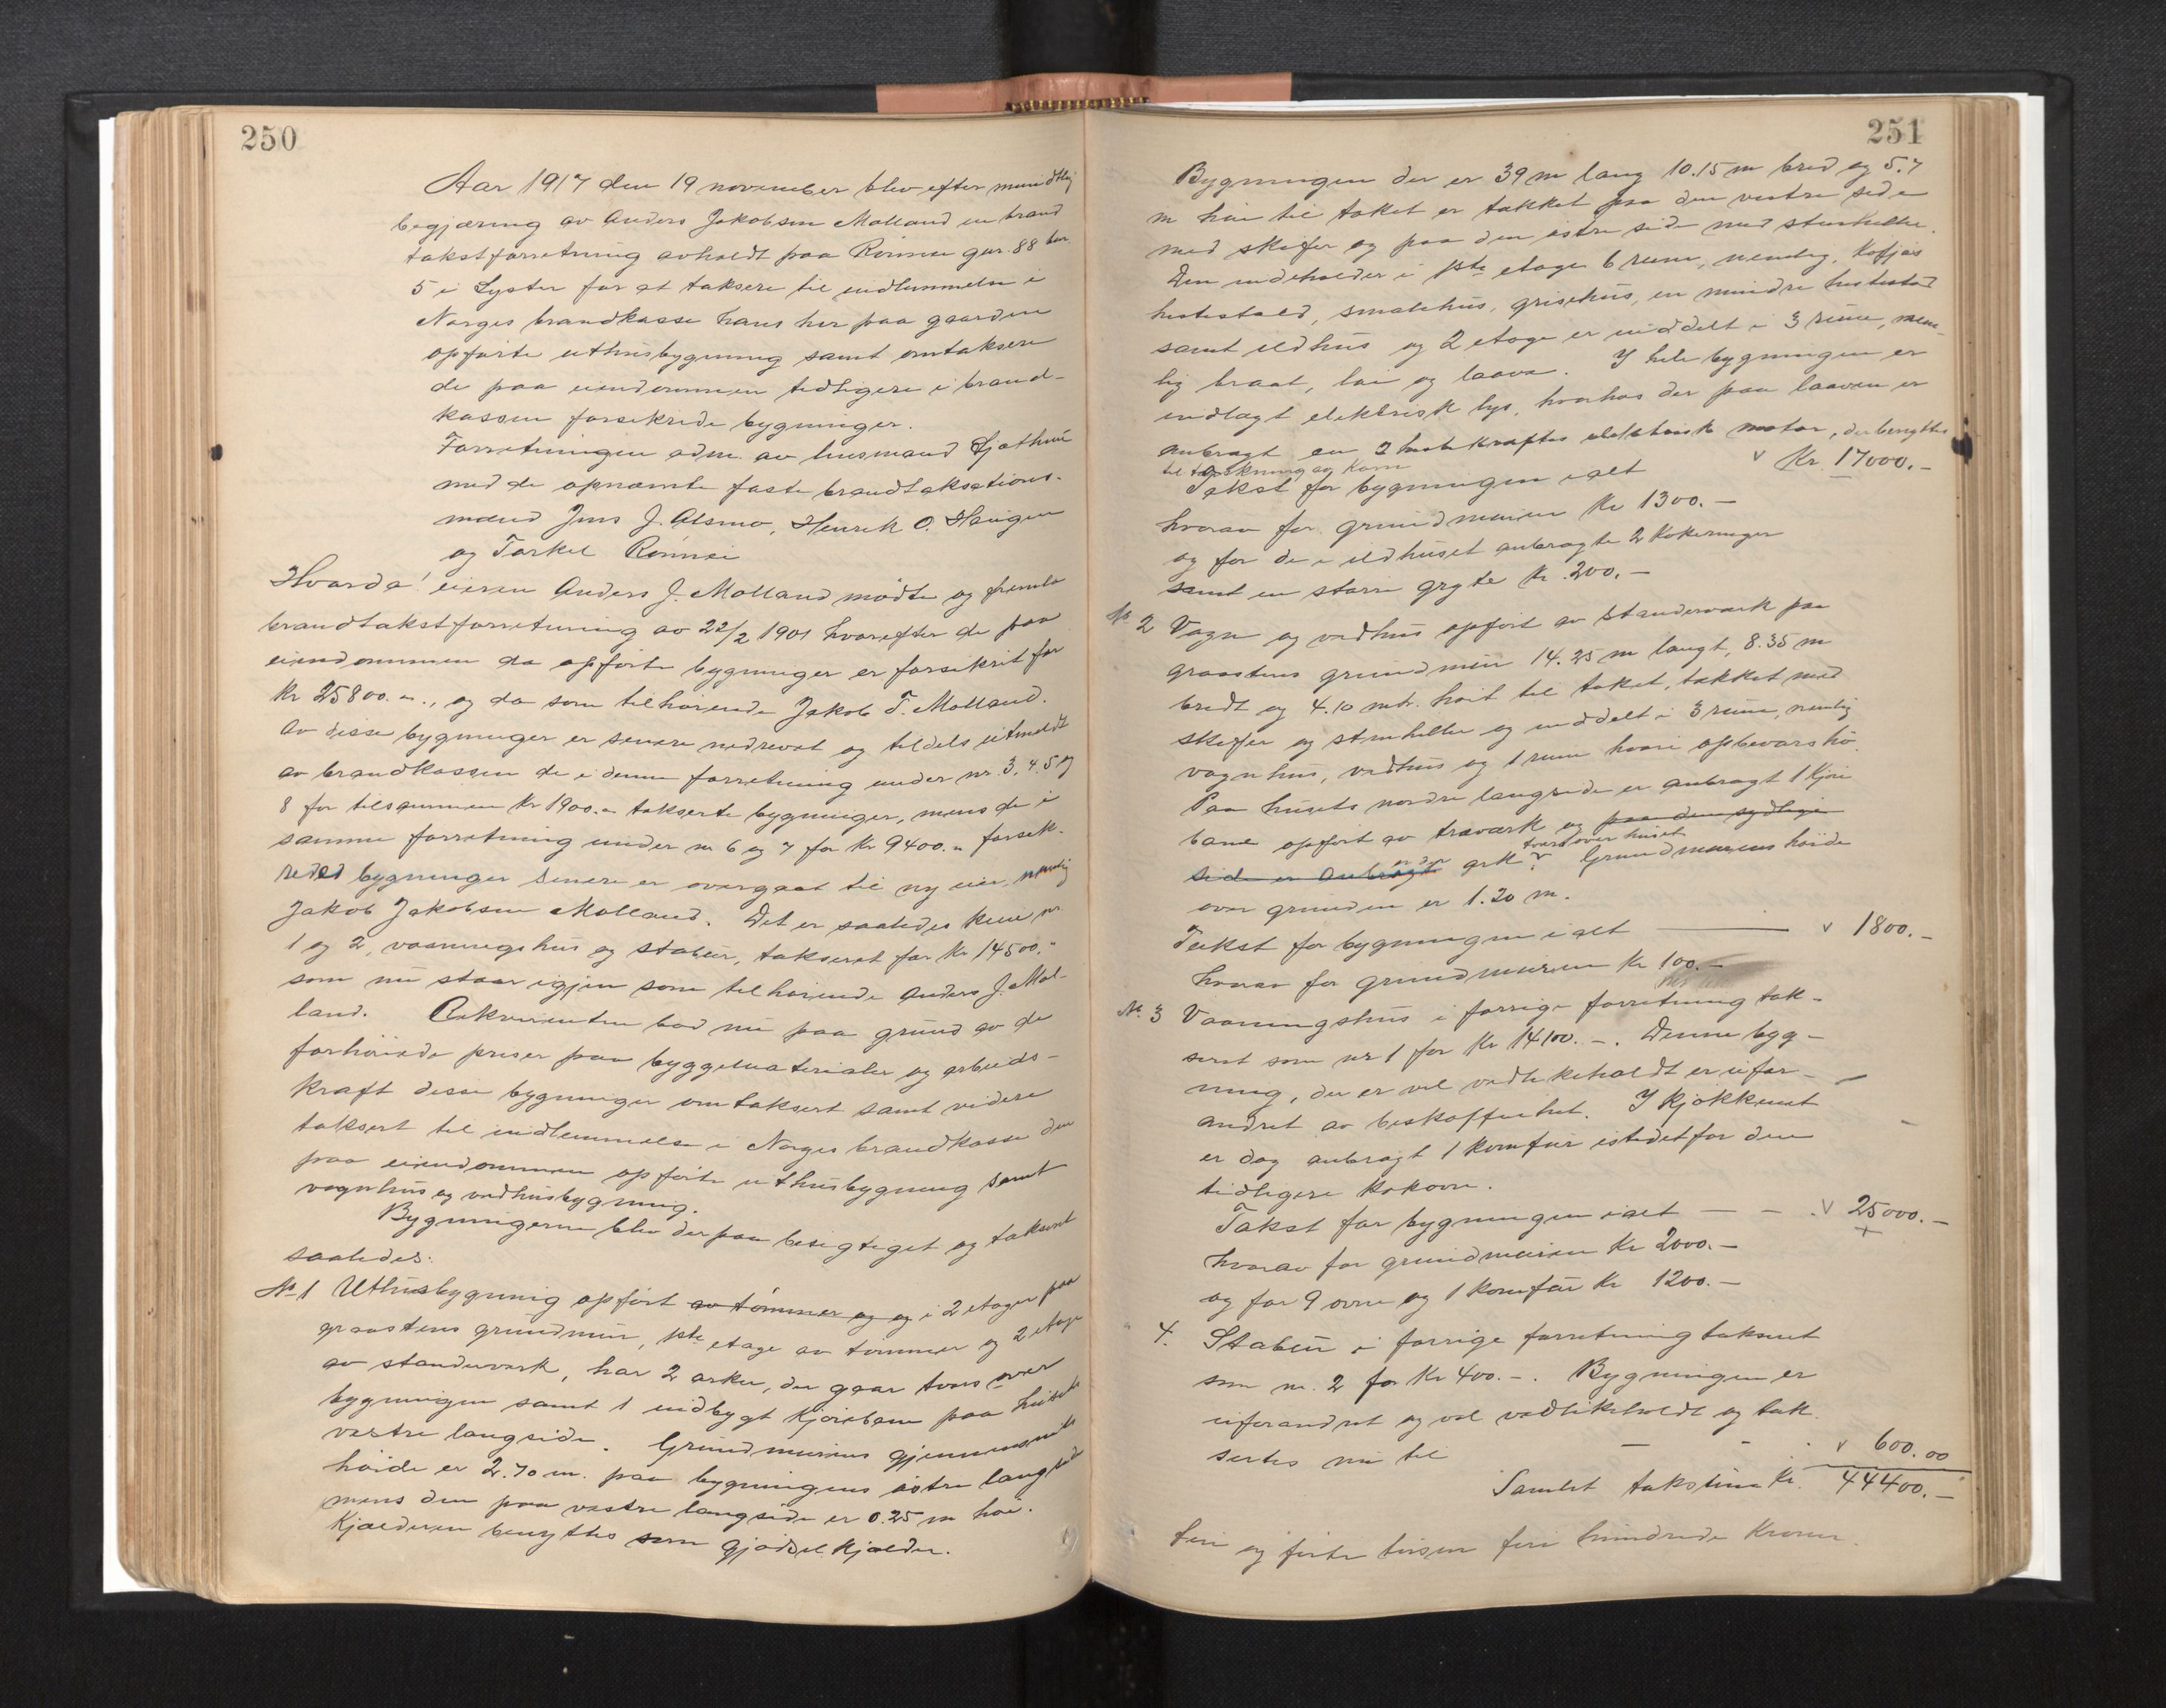 250
Aar 1917 den 19 november blev efter mundtlig
begjæring av Anders Jakobsen Molland en brand
takstforretning avholdt paa Rönnei gnr. 88 bnr.
5 i Lyster for at taksere til indlemmelse i
Norges brandkasse hans her paa gaarden
opförte uthusbygning samt omtaksere
de paa eiendommen tidligere i brand-
kassen forsikrede bygninger.
Forretningen adm. av lensmand
med de opnævnte faste brandtaksations-
mænd Jens J. Alsmo, Henrik O. Haugen
og Torkel Rönnei
Hvorda! eieren Anders J. Molland mödte og fremla
brandtakstforretning av 22/2 1901 hvorefter de paa
eiendommen da opförte bygninger er forsikrit for
Kr 25800.-, og da som tilhörende Jakob T. Molland.
Av disse bygninger er senere nedrevet og tildels utmeldt
av brandkassen de i denne forretning under nr. 3, 4, 5 og
8 for tilsammen Kr 1900.- takserte bygninger, mens de i
samme forretning under nr 6 og 7 for Kr 9400.- forsik-
rede bygninger senere er overgaat til ny eier, nemlig
Jakob Jakobsen Molland. Det er saaledes kun nr
1 og 2, vaaningshus og stabur, taksert for Kr 14500.-
som nu staar igjen som tilhörende Anders J. Mol-
land. Rekvirenten bad nu paa grund av de
forhöiede priser paa byggematerialer og arbeids-
kraft disse bygninger omtaksert samt videre
taksert til indlemmelse i Norges brandkasse den
paa eiendommen opförte uthusbygning samt
vognhus og vedhusbygning.
Bygningerne blev derpaa besigtiget og taksert
saaledes:
No 1 Uthusbygning opfört av tömmer og og i 2 etager paa
graastens grundmur, 1ste etage av tömmer og 2 etage
av standerverk, har 2 arker, der gaar tvers over
bygningen samt 1 indbygt kjörebane paa husets
vestre langside. Grundmurens gjennemsnits
höide er 2.70 m. paa bygningens östre langside
mens den paa vestre langside er 0.25 m höi.
Kjælderen benyttes som gjödselkjælder.
251
Bygningen der er 39 m lang 10.15 m bred og 5.7
m höi til taket er tækket paa den vestre side
med skifer og paa den östre side med stenheller.
Den indeholder i 1ste etage 6 rum, nemlig, kofjös
hestestald, smalehus, grisehus, en mindre hestestald
samt ildhus og 2 etage er inddelt i 3 rum, nem-
lig braat, lai og laave. I hele bygningen er
indlagt elektrisk lys, hvorhos der paa laaven er
anbragt en 2 hestekrafts elektrisk motor, der benyttes
til tærskning av korn
Takst for bygningen ialt v Kr. 17000.-
hvorav for grundmuren Kr 1300.-
og for de i ildhuset anbragte 2 kokeringer
samt en större gryte Kr. 200.-
No 2 Vogn og vedhus opfört av standerverk paa
graastens grundmur 14.25 m langt, 8.35 m
bredt og 4.10 mtr. höit til taket, tækket med
skifer og stenheller og inddelt i 3 rum, nemlig
vognhus, vedhus og 1 rum hvori opbevars hö.
Paa husets nordre langside er anbragt 1 kjöre
bane opfört av træverk og paa den sydlige
tvert over huset
side er anbragt er der ark v. Grundmurens höide
over grunden er 1.20 m.
Takst for bygningen ialt v 1800.-
hvorav for grundmuren Kr 100.-
No 3 Vaaningshus i forrige forretning tak-
sert som nr 1 for Kr 14100.-. Denne byg-
ning, der er vel vedlikeholdt er ufor-
andret av beskaffenhet. I kjökkenet
er dog anbragt 1 komfur istedetfor den
tidligere kokovn.
Takst for bygningen ialt - - v 25000.-
hvorav for grundmuren Kr 2000.-
og for 9 ovne og 1 komfur Kr 1200.-
" 4. Stabur i forrige forretning taksert
som nr. 2 for Kr 400.-. Bygningen er
uforandret og vel vedlikeholdt og tak-
sertes nu til - - v 600.00
Samlet takstsum Kr. 44400.-
Firi og firti tusen fire hundrede Kroner.